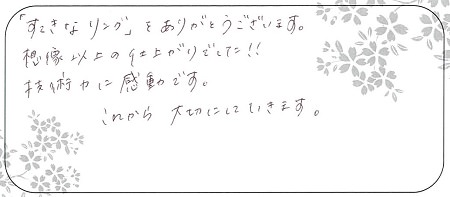 「すてきなリング」をありがとうございます。
想像以上の仕上がりでした!!
技術力に感動です。
これから 大切にしていきます。